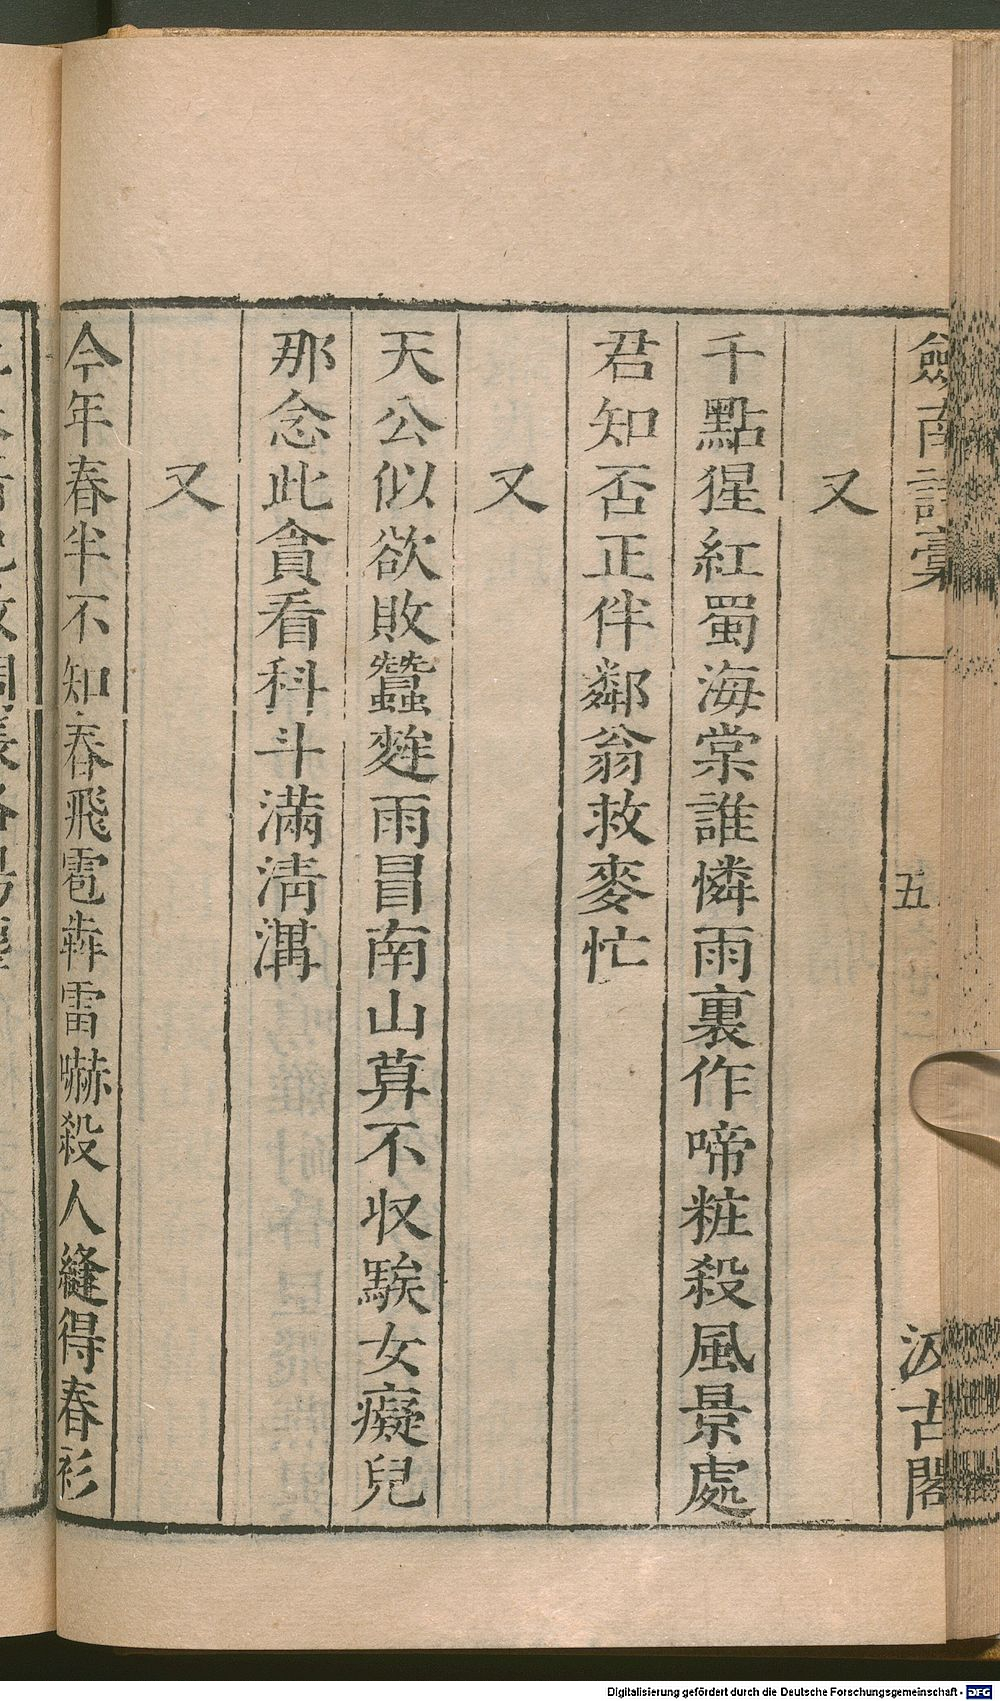 劍南詩稾
五
汲古閣
又
千點猩紅蜀海棠誰憐雨裏作啼粧殺風景處
君知否正伴鄰翁救麥忙
又
天公似欲敗蠶麰雨冒南山算不収騃女癡兒
那念此貪看科斗滿清溝
又
今年春半不知春飛雹犇雷嚇殺人縫得春衫
Digitalisierung gefördert durch die Deutsche Forschungsgemeinschaft - DFG